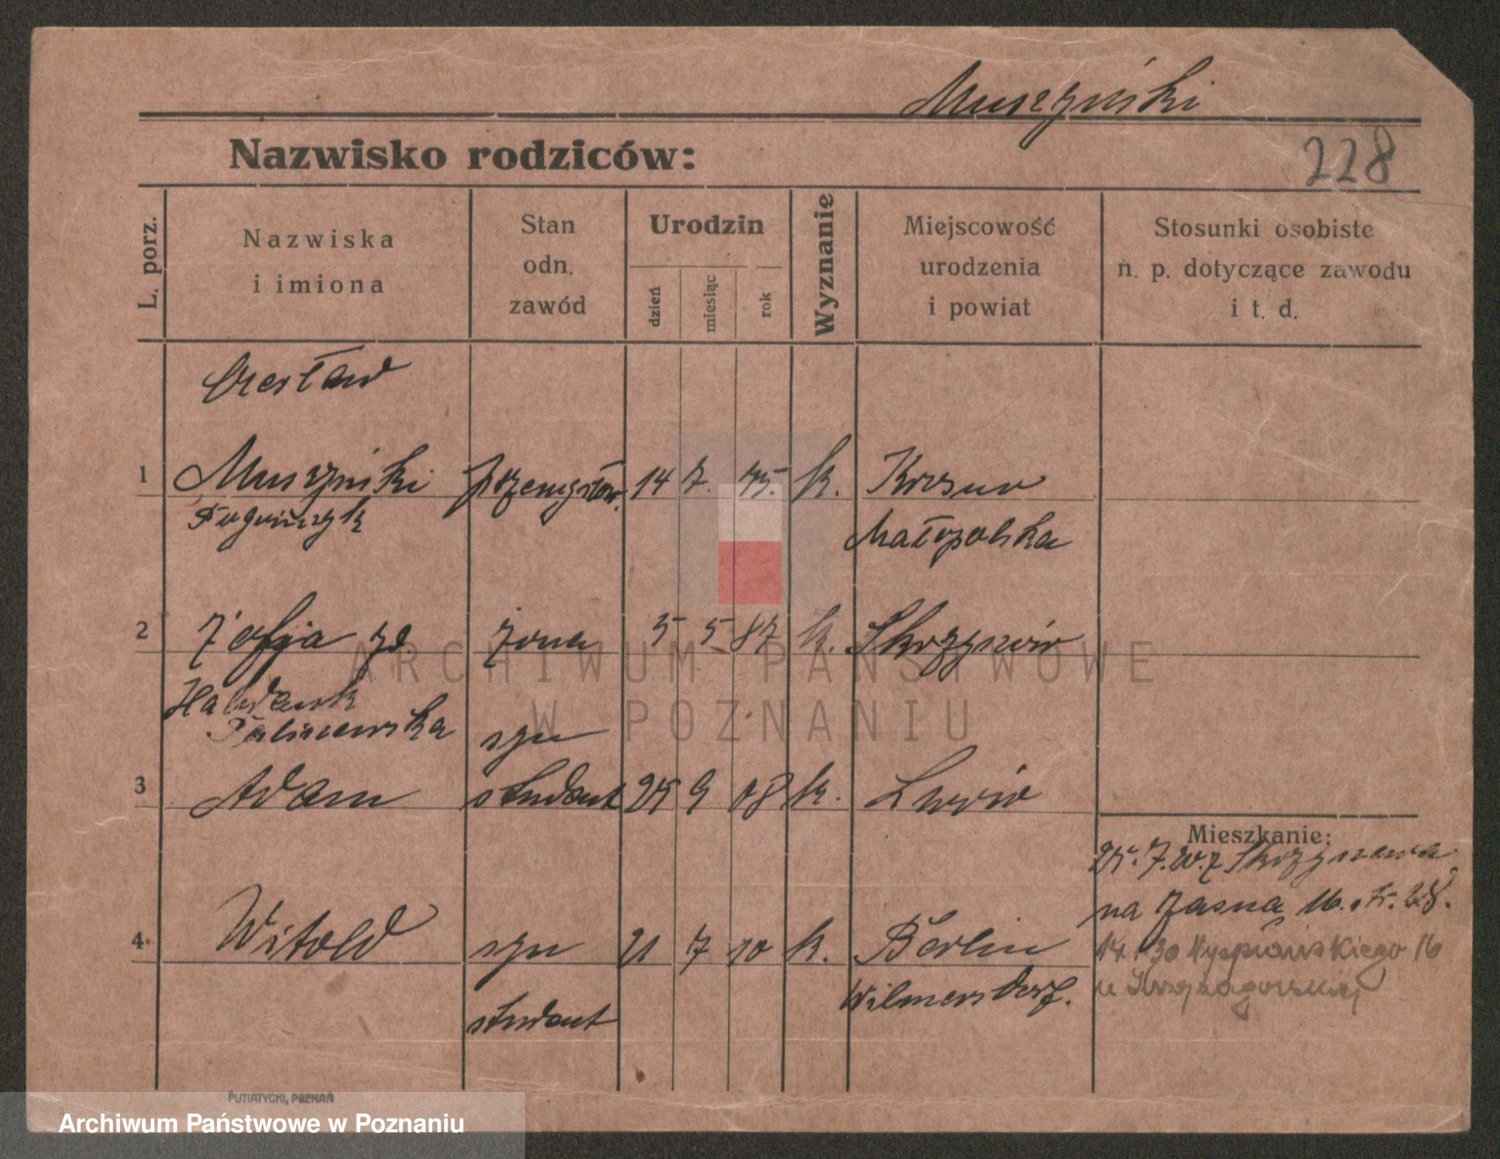 Muszyński
Nazwisko rodziców:
228
L. porz.
Nazwiska
i imiona
Stan
odn.
zawód
Urodzin
dzień
miesiąc
rok
Wyznanie
Miejscowość
urodzenia
i powiat
Stosunki osobiste
n. p. dotyczące zawodu
i t. d.
Czesław
1 Muszyński przemysłow. 14 7. 75. k. Krosno
Małopolska
2 Zofja zd. żona 5 5 87 k.
syn
3 Adam student 25 9 08 k. Lwów
Mieszkanie:
25. 7. w. z
na Jasną 16.
4. Witold syn 21 7 10 k. Berlin
14 30 Wyspiańskiego 16
Wilmersdorf.
student
PUTIATYCKI, POZNAŃ
ARCHIWUM PAŃSTWOWE
W POZNANIU
Archiwum Państwowe w Poznaniu